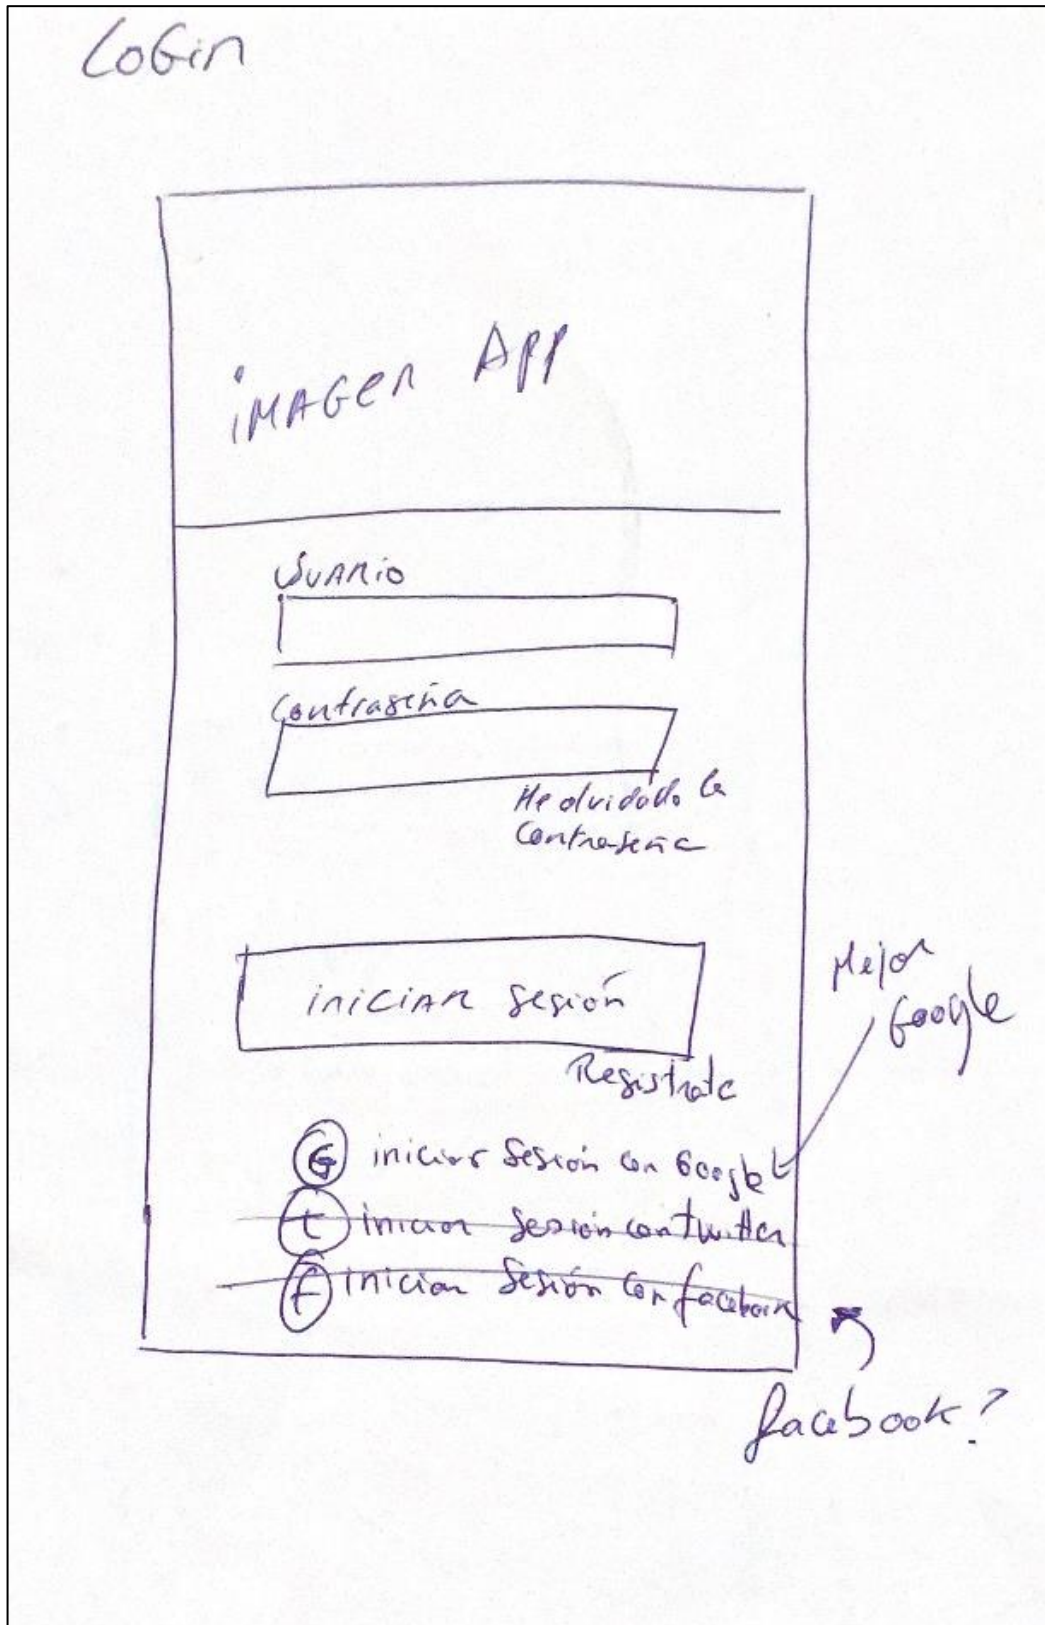 LoGin
iMAGEn App
Usuario
Contraseña
He olvidado la
Contraseña
iniciar Sesión
Mejor
Google
Registrate
G iniciar Sesión con Google
t iniciar Sesión con twitter
f iniciar Sesión con facebook
facebook?